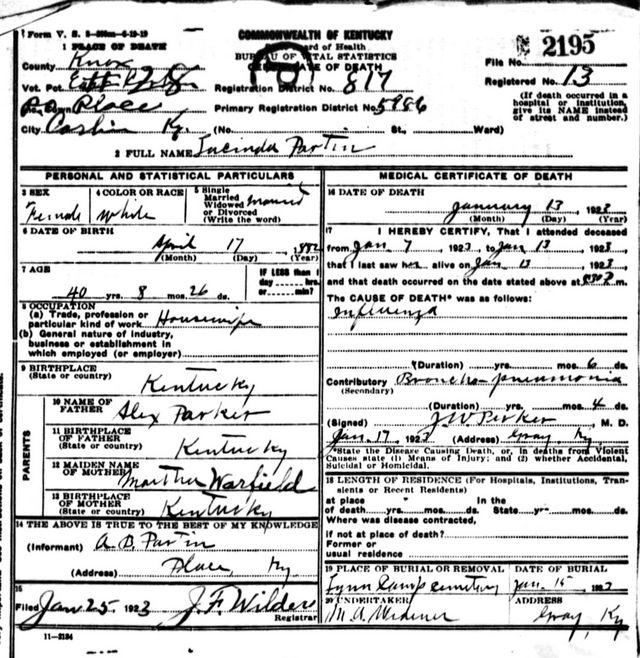 Form V. S.
COMMONWEALTH OF KENTUCKY
1 PLACE OF DEATH
Board of Health
BUREAU OF VITAL STATISTICS
CERTIFICATE OF DEATH
File No. 2195
Registered No. 13
(If death occurred in a
hospital or institution,
give its NAME instead
of street and number.)
County Knox
Vot. Pct.
Registration District No. 817
Place
Primary Registration District No. 5986
City Ky. (No. St., Ward)
2 FULL NAME Lucinda Partin
PERSONAL AND STATISTICAL PARTICULARS
3 SEX
Female
4 COLOR OR RACE
White
5 Single
Married
Widowed
or Divorced
(Write the word)
Married
6 DATE OF BIRTH
April 17, 1882
(Month) (Day) (Year)
7 AGE
40 yrs. 8 mos. 26 ds.
IF LESS than 1
day hrs.
or min.?
8 OCCUPATION
(a) Trade, profession or
particular kind of work Housewife
(b) General nature of industry,
business or establishment in
which employed (or employer)
9 BIRTHPLACE
(State or country)
Kentucky
PARENTS
10 NAME OF
FATHER
Alex Parker
11 BIRTHPLACE
OF FATHER
(State or country)
Kentucky
12 MAIDEN NAME
OF MOTHER
Martha Warfield
13 BIRTHPLACE
OF MOTHER
(State or country)
Kentucky
14 THE ABOVE IS TRUE TO THE BEST OF MY KNOWLEDGE
(Informant) A. B. Partin
(Address) Place, Ky
15
Filed Jan 25, 1923 J. F. Wilder
Registrar
11-3184
MEDICAL CERTIFICATE OF DEATH
16 DATE OF DEATH
January 13, 1923
(Month) (Day) (Year)
17 I HEREBY CERTIFY, That I attended deceased
from Jan 7, 1923, to Jan 13, 1923,
that I last saw her alive on Jan 13, 1923,
and that death occurred on the date stated above at m.
The CAUSE OF DEATH* was as follows:
Influenza
(Duration) yrs. mos. 6 ds.
Contributory Broncho-pneumonia
(Secondary)
(Duration) yrs. mos. 4 ds.
(Signed) J W Parker, M. D.
Jan. 17, 1923 (Address) Gray, Ky
*State the Disease Causing Death, or, in deaths from Violent
Causes state (1) Means of Injury; and (2) whether Accidental,
Suicidal or Homicidal.
18 LENGTH OF RESIDENCE (For Hospitals, Institutions, Tran-
sients or Recent Residents)
At place In the
of death yrs. mos. ds. State yrs. mos. ds.
Where was disease contracted,
if not at place of death?
Former or
usual residence
19 PLACE OF BURIAL OR REMOVAL
Lynn Camp cemetery
DATE OF BURIAL
Jan. 15, 1923
20 UNDERTAKER
M. A.
ADDRESS
Gray, Ky